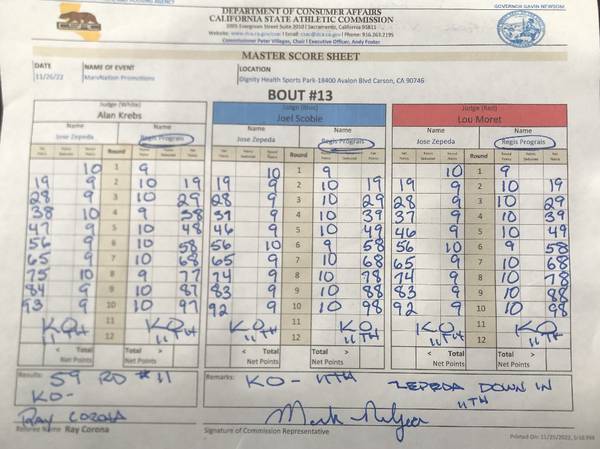 GOVERNOR GAVIN NEWSOM
DEPARTMENT OF CONSUMER AFFAIRS
CALIFORNIA STATE ATHLETIC COMMISSION
2005 Evergreen Street Suite 2010 | Sacramento, California 95815
Website: www.dca.ca.gov/csac | Email: csac@dca.ca.gov | Phone: 916.263.2195
Commissioner Peter Villegas, Chair | Executive Officer, Andy Foster
MASTER SCORE SHEET
DATE NAME OF EVENT LOCATION
11/26/22 MarvNation Promotions Dignity Health Sports Park-18400 Avalon Blvd Carson, CA 90746
BOUT #13
Judge (White) Judge (Blue) Judge (Red)
Alan Krebs Joel Scobie Lou Moret
Name Name Name Name Name Name
Jose Zepeda Regis Prograis Jose Zepeda Regis Prograis Jose Zepeda Regis Prograis
Round Round Round
10 1 9 10 1 9 10 1 9
19 9 2 10 19 19 9 2 10 19 19 9 2 10 19
28 9 3 10 29 28 9 3 10 29 28 9 3 10 29
38 10 4 9 38 37 9 4 10 39 37 9 4 10 39
47 9 5 10 48 46 9 5 10 49 46 9 5 10 49
56 9 6 10 58 56 10 6 9 58 56 10 6 9 58
65 9 7 10 68 65 9 7 10 68 65 9 7 10 68
75 10 8 9 77 74 9 8 10 78 74 9 8 10 78
84 9 9 10 87 83 9 9 10 88 83 9 9 10 88
93 9 10 10 97 92 9 10 10 98 92 9 10 10 98
KO 11 KO KO 11 KO KO 11 KO
11TH 12 11TH 11TH 12 11TH 11TH 12 11TH
< Total > < Total > < Total >
Net Points Net Points Net Points
Results: 59 RD #11
KO-
Remarks: KO - 11TH ZEPEDA DOWN IN
11TH
RAY CORONA
Referee Name Ray Corona
Signature of Commission Representative
Printed On: 11/25/2022, 5:10 PM